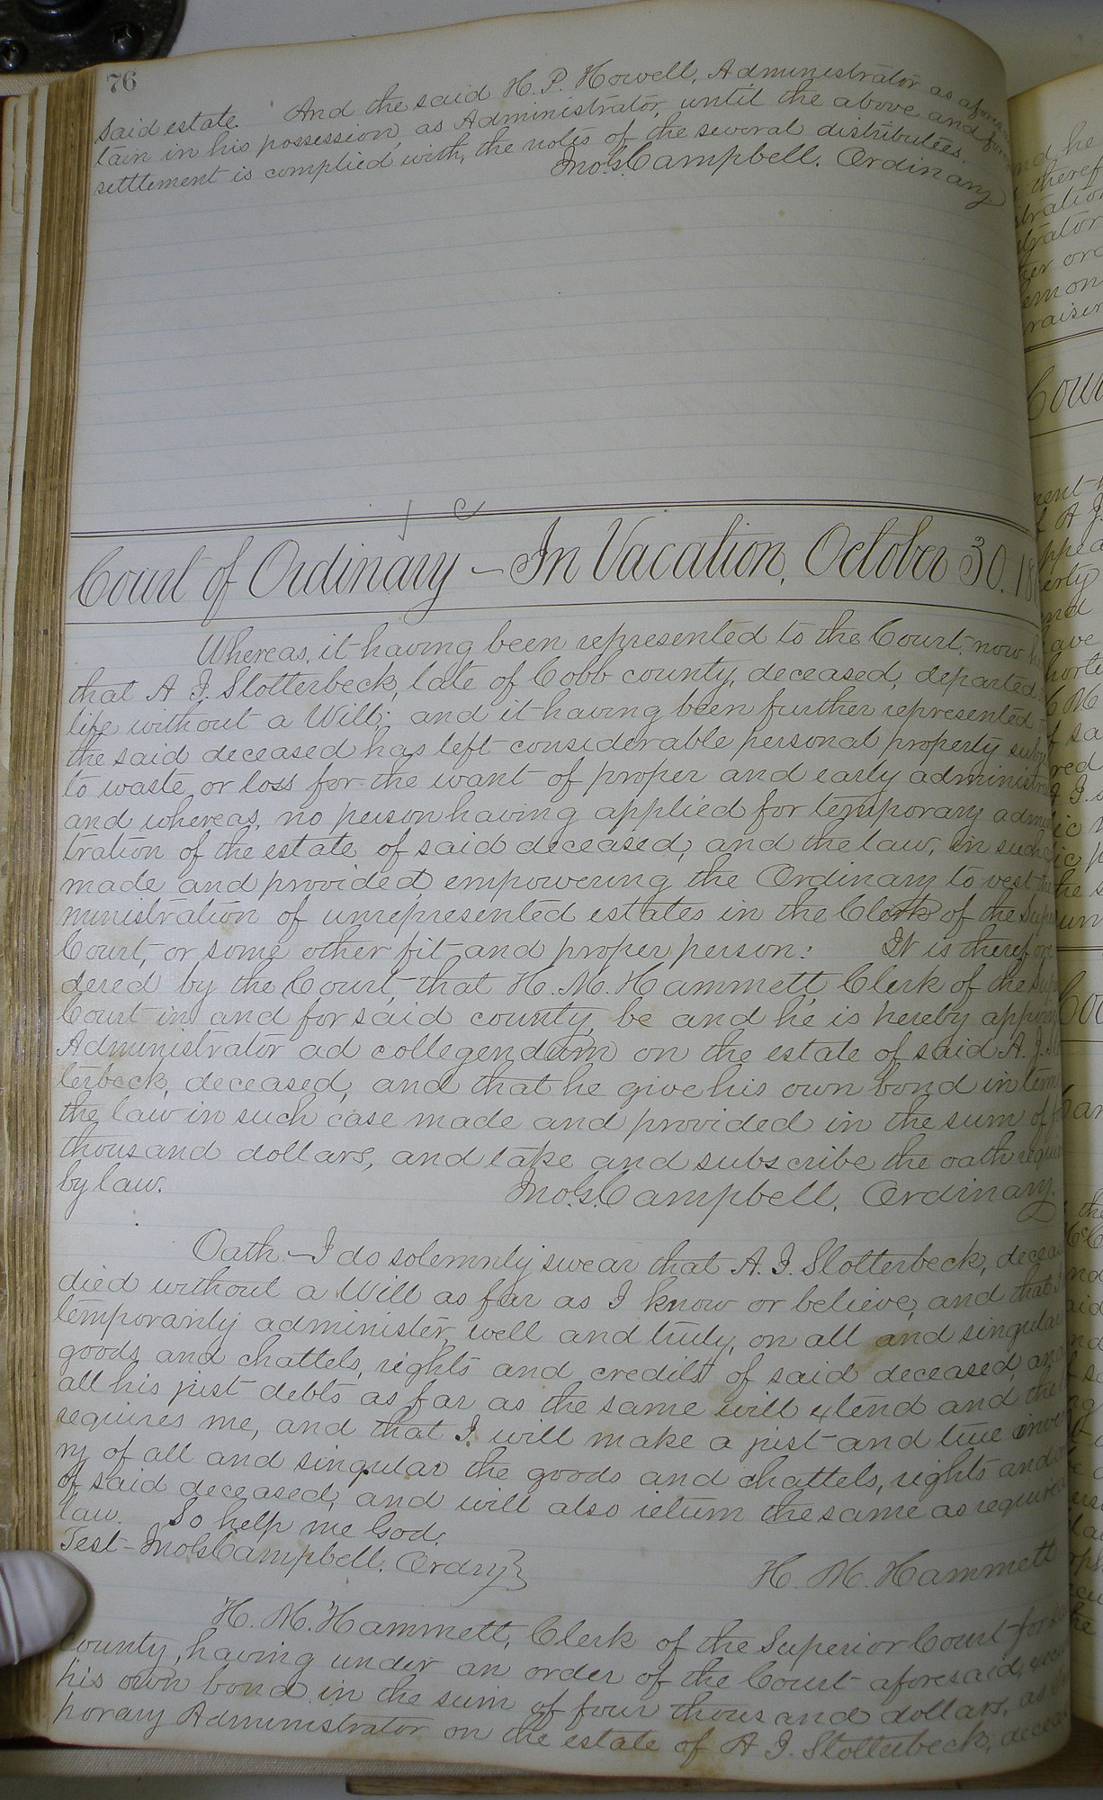 76
said estate. And the said H. P. Howell, Administrator as
tain in his possession, as Administrator, until the above and
settlement is complied with, the notes of the several distributees.
Jno. G. Campbell. Ordinary
Court of Ordinary – In Vacation, October 30. 18
Whereas, it having been represented to the Court, now
that A. J. Slotterbeck, late of Cobb county, deceased, departed
life without a Will; and it having been further represented
the said deceased has left considerable personal property
to waste or loss for the want of proper and early
and whereas, no person having applied for temporary
tration of the estate of said deceased, and the law, in such
made and provided empowering the Ordinary to vest the
ministration of unrepresented estates in the Clerk of the
Court, or some other fit and proper person: It is
dered by the Court, that H. M. Hammett Clerk of the
Court in and for said county, be and he is hereby
Administrator ad collegendum on the estate of said A. J.
terbeck, deceased, and that he give his own bond in
the law in such case made and provided in the sum of
thousand dollars, and take and subscribe the oath
by law. Jno. G. Campbell, Ordinary.
Oath – I do solemnly swear that A. J. Slotterbeck,
died without a Will as far as I know or believe, and that
temporarily administer, well and truly, on all and singular
goods and chattels, rights and credits of said deceased, and
all his just debts as far as the same will extend and the
requires me, and that I will make a just and true
ry of all and singular the goods and chattels, rights and
of said deceased, and will also return the same as
law. So help me God.
Test – Jno. G. Campbell. Ordry} H. M. Hammett
H. M. Hammett, Clerk of the Superior Court for
County, having under an order of the Court aforesaid,
his own bond in the sum of four thousand dollars, as
porary Administrator on the estate of A J. Slotterbeck,